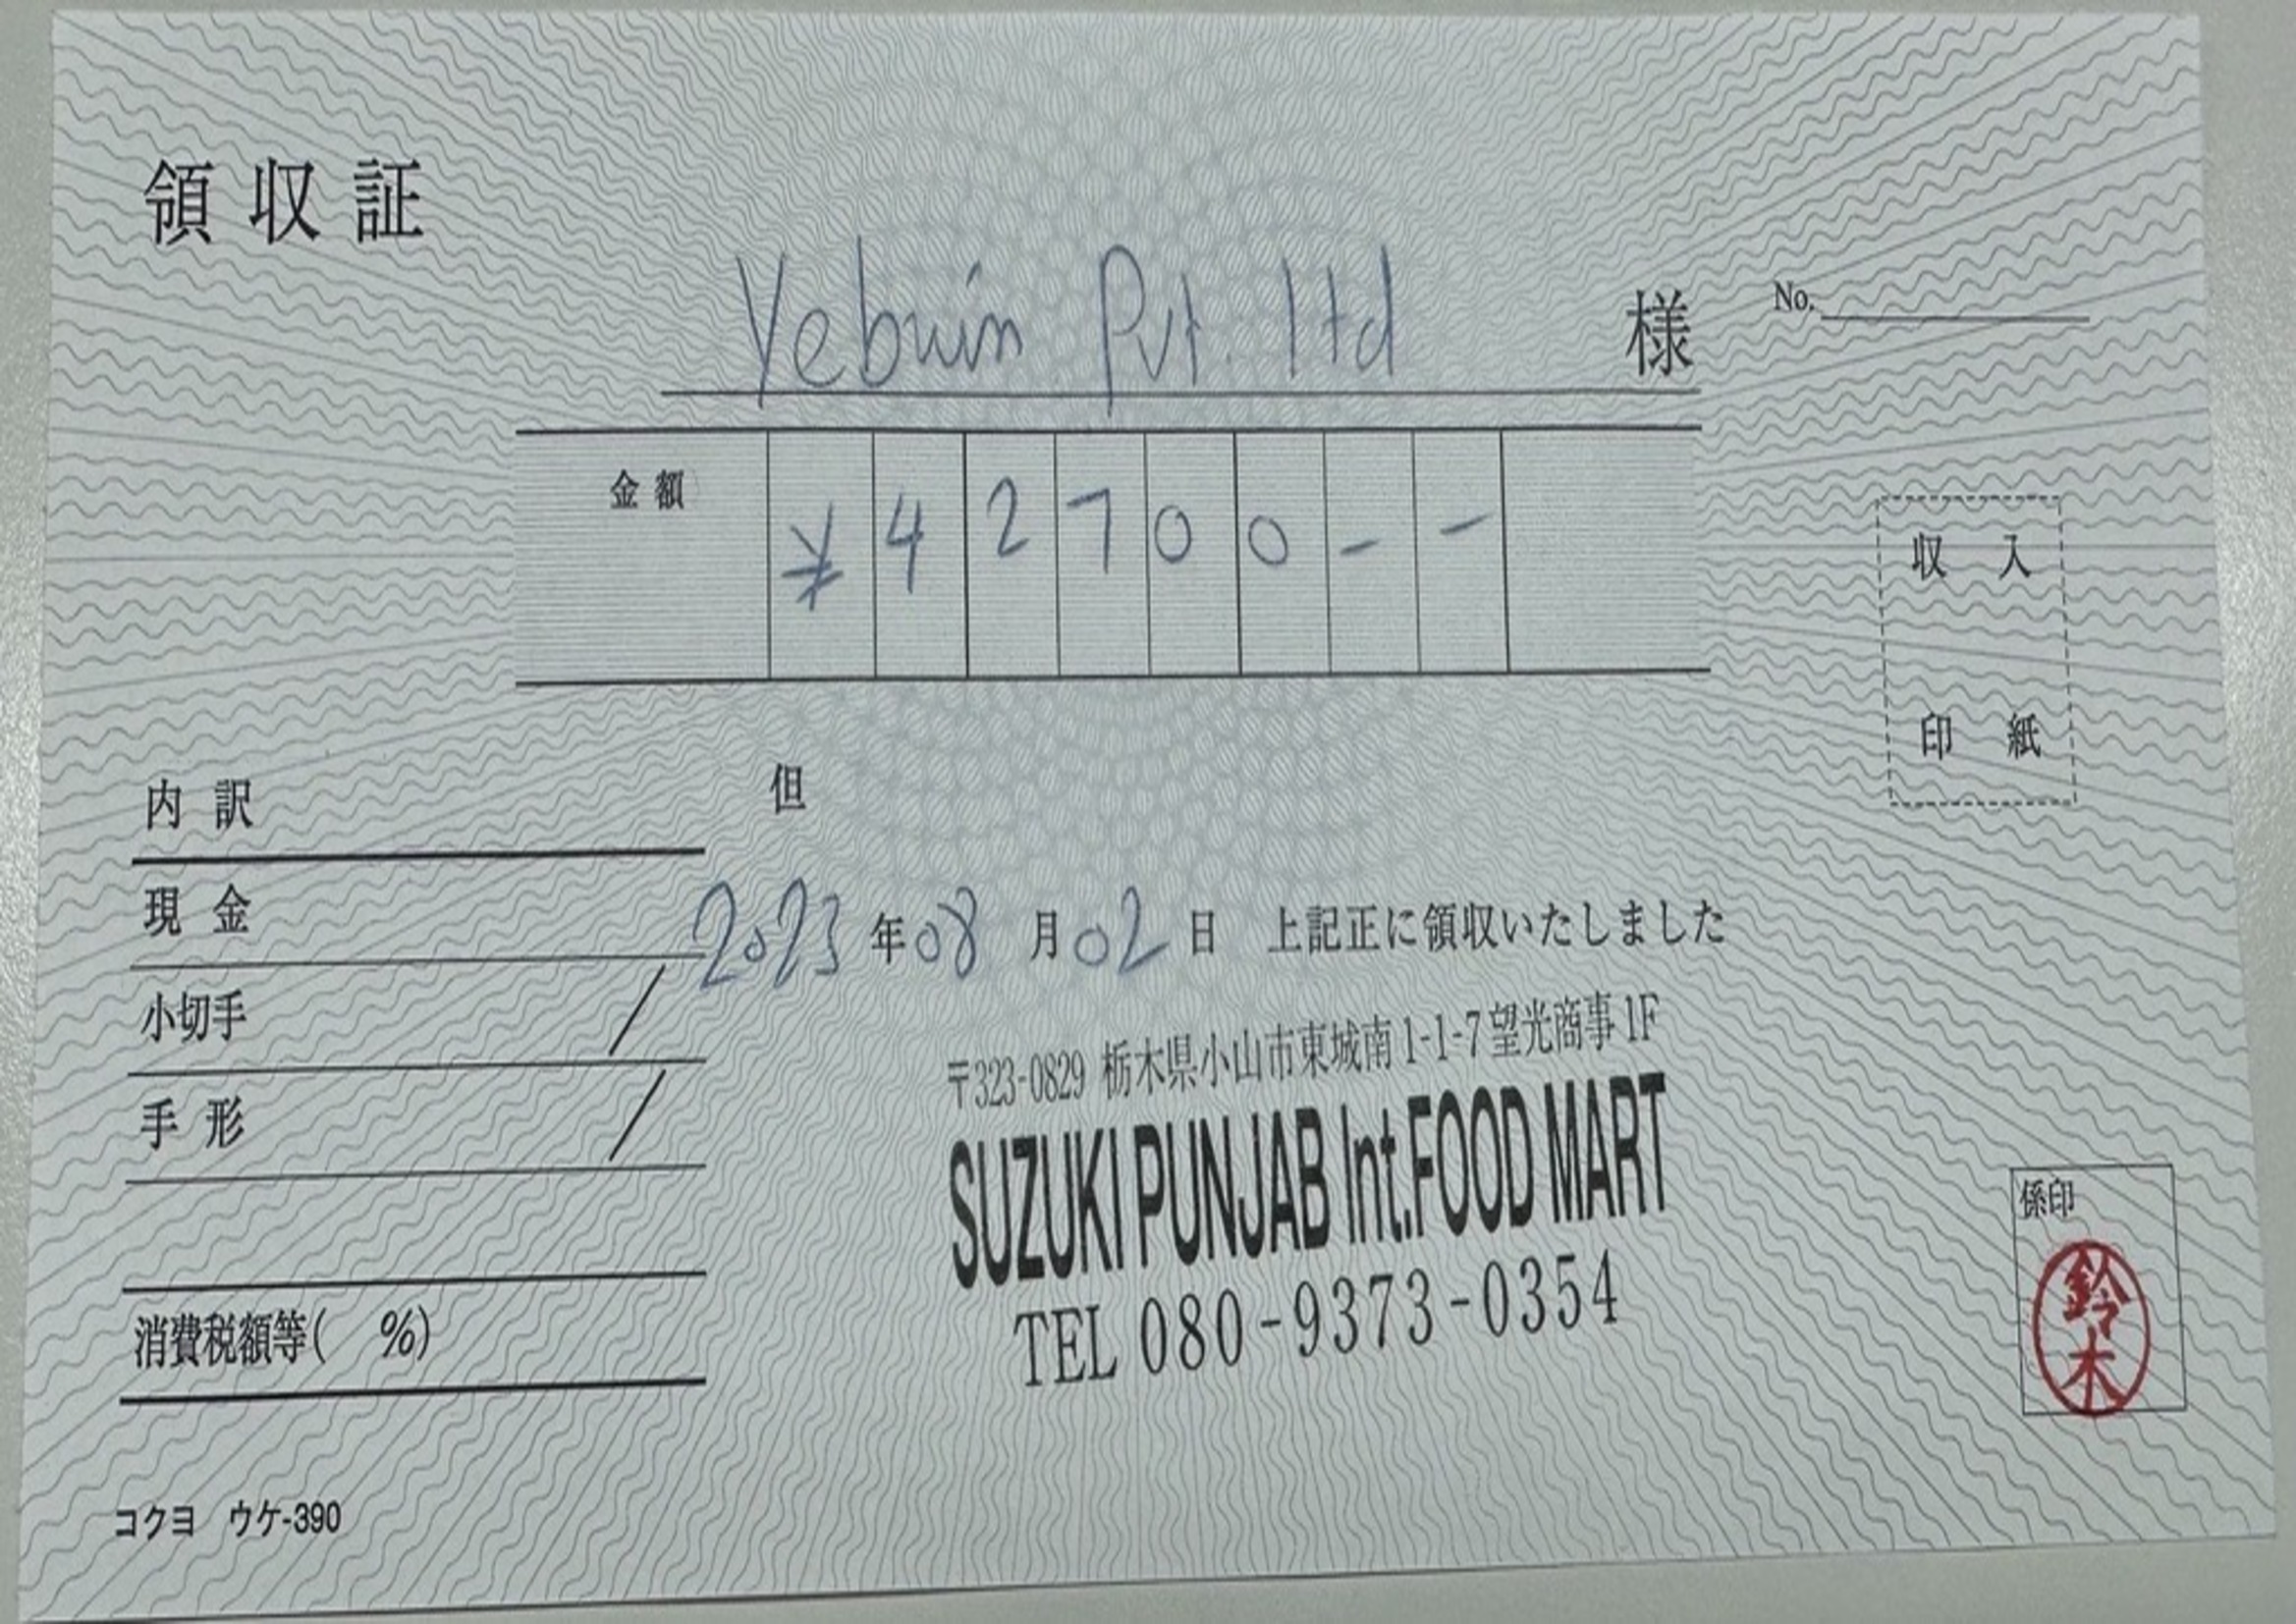 領収証
Yebuin Pvt. ltd 様
No.
金額 ¥42700--
収入
印紙
内訳
但
現金
2023年08月02日 上記正に領収いたしました
小切手
手形
〒323-0829 栃木県小山市東城南1-1-7望光商事1F
SUZUKI PUNJAB Int.FOOD MART
TEL 080-9373-0354
消費税額等( %)
係印
鈴木
コクヨ ウケ-390